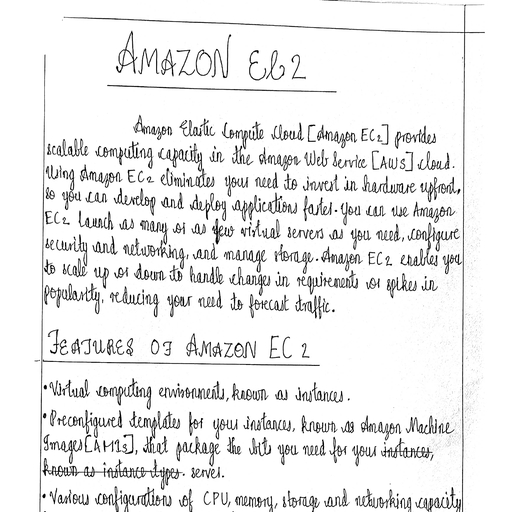 AMAZON EC2
Amazon Elastic Compute Cloud [Amazon EC2] provides
scalable computing capacity in the Amazon Web Service [AWS] cloud.
Using Amazon EC2 eliminates your need to invest in hardware upfront,
so you can develop and deploy applications faster. You can use Amazon
EC2 launch as many or as few virtual servers as you need, configure
security and networking, and manage storage. Amazon EC2 enables you
to scale up or down to handle changes in requirements or spikes in
popularity, reducing your need to forecast traffic.
FEATURES OF AMAZON EC2
• Virtual computing environments, known as instances.
• Preconfigured templates for your instances, known as Amazon Machine
Images [AMIs], that package the bits you need for your instances,
known as instance types. server.
• Various configurations of CPU, memory, storage and networking capacity